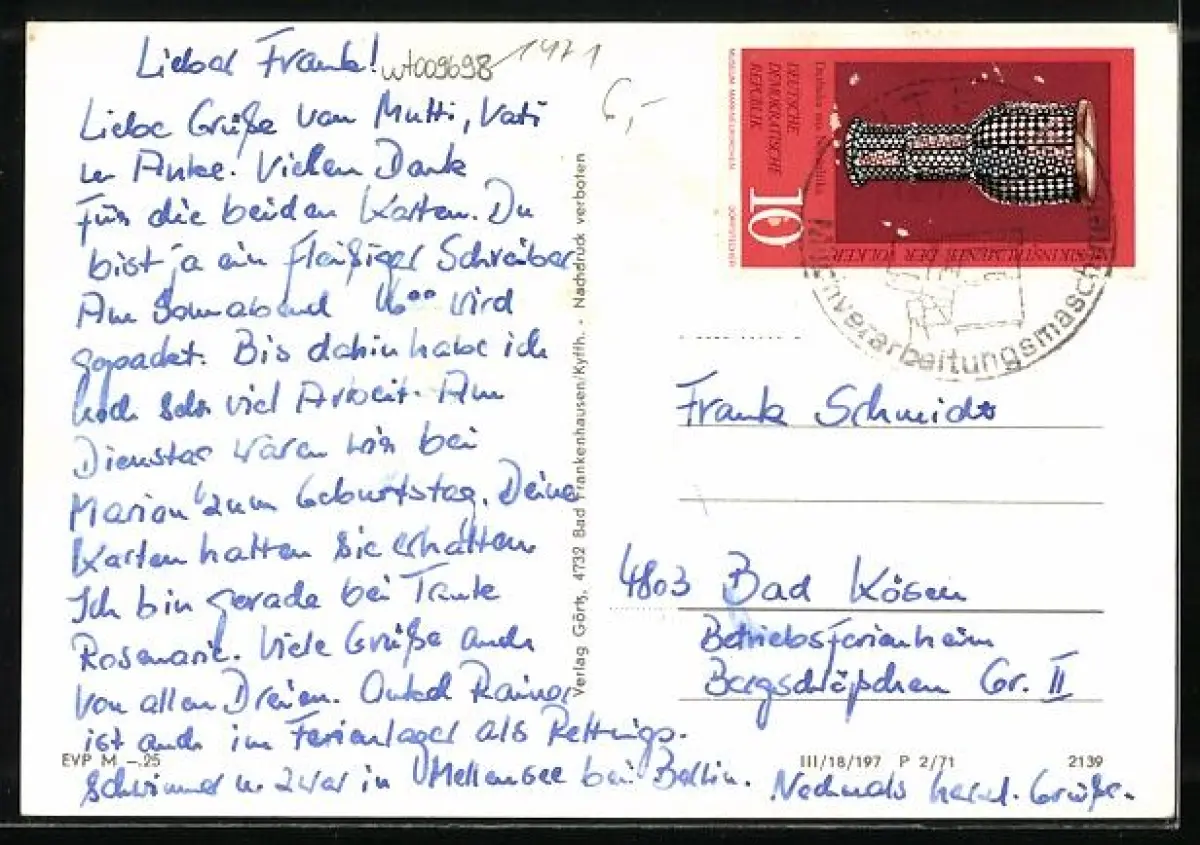 Lieber Frank!
wt009698
1971
6,-
Liebe Grüße von Mutti, Vati
u. Anke. Vielen Dank
für die beiden Karten. Du
bist ja ein fleißiger Schreiber
Am Sonnabend 16°° wird
gepackt. Bis dahin habe ich
noch sehr viel Arbeit. Am
Dienstag waren wir bei
Marion zum Geburtstag. Deine
Karten hatten sie erhalten.
Ich bin gerade bei Tante
Rosemarie. Viele Grüße auch
von allen Dreien. Onkel Rainer
ist auch im Ferienlager als Rettungs-
schwimmer u. zwar in Mellensee bei Berlin. Nochmals herzl. Grüße.
Verlag Görtz, 4732 Bad Frankenhausen/Kyffh. - Nachdruck verboten
DEUTSCHE
DEMOKRATISCHE
REPUBLIK
MUSEUM MARKNEUKIRCHEN
10
MUSIKINSTRUMENTE DER VÖLKER
verarbeitungsmasch
Frank Schmidt
4803 Bad Kösen
Betriebsferienheim
Bergschlößchen Gr. II
EVP M -.25
III/18/197 P 2/71
2139